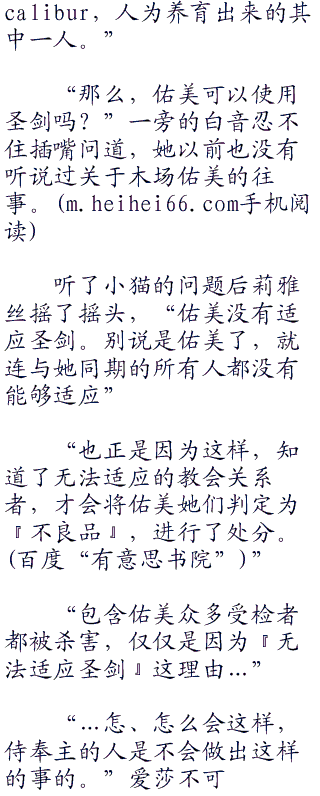 calibur，人为养育出来的其
中一人。”
“那么，佑美可以使用
圣剑吗？”一旁的白音忍不
住插嘴问道，她以前也没有
听说过关于木场佑美的往
事。(m.heihei66.com手机阅
读)
听了小猫的问题后莉雅
丝摇了摇头，“佑美没有适
应圣剑。别说是佑美了，就
连与她同期的所有人都没有
能够适应”
“也正是因为这样，知
道了无法适应的教会关系
者，才会将佑美她们判定为
『不良品』，进行了处分。
(百度“有意思书院”)”
“包含佑美众多受检者
都被杀害，仅仅是因为『无
法适应圣剑』这理由…”
“…怎、怎么会这样，
侍奉主的人是不会做出这样
的事的。”爱莎不可